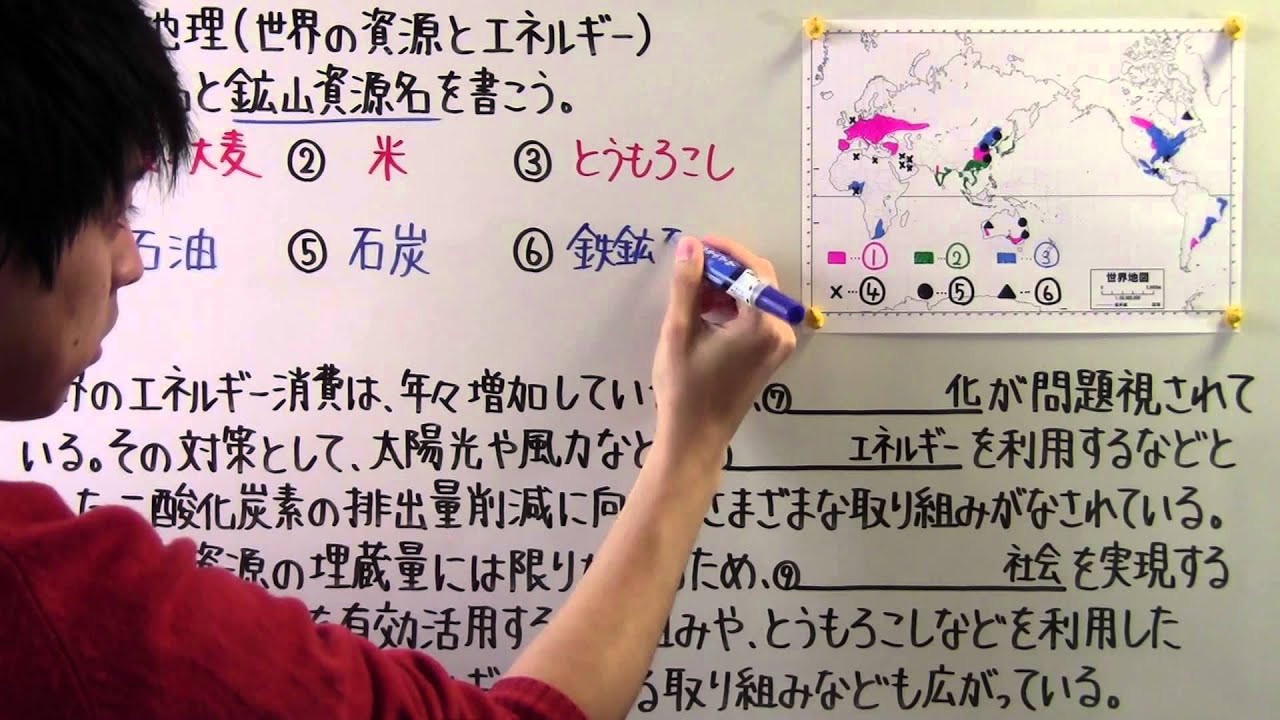 地理(世界の資源とエネルギー)
と鉱山資源名を書こう。
大麦 ② 米 ③ とうもろこし
石油 ⑤ 石炭 ⑥ 鉄鉱
① ② ③
④ ⑤ ⑥
世界地図
のエネルギー消費は、年々増加してい 、⑦ 化が問題視されて
いる。その対策として、太陽光や風力など エネルギーを利用するなどと
した二酸化炭素の排出量削減に向 さまざまな取り組みがなされている。
資源の埋蔵量には限り ため、⑨ 社会を実現する
を有効活用する 組みや、とうもろこしなどを利用した
る取り組みなども広がっている。